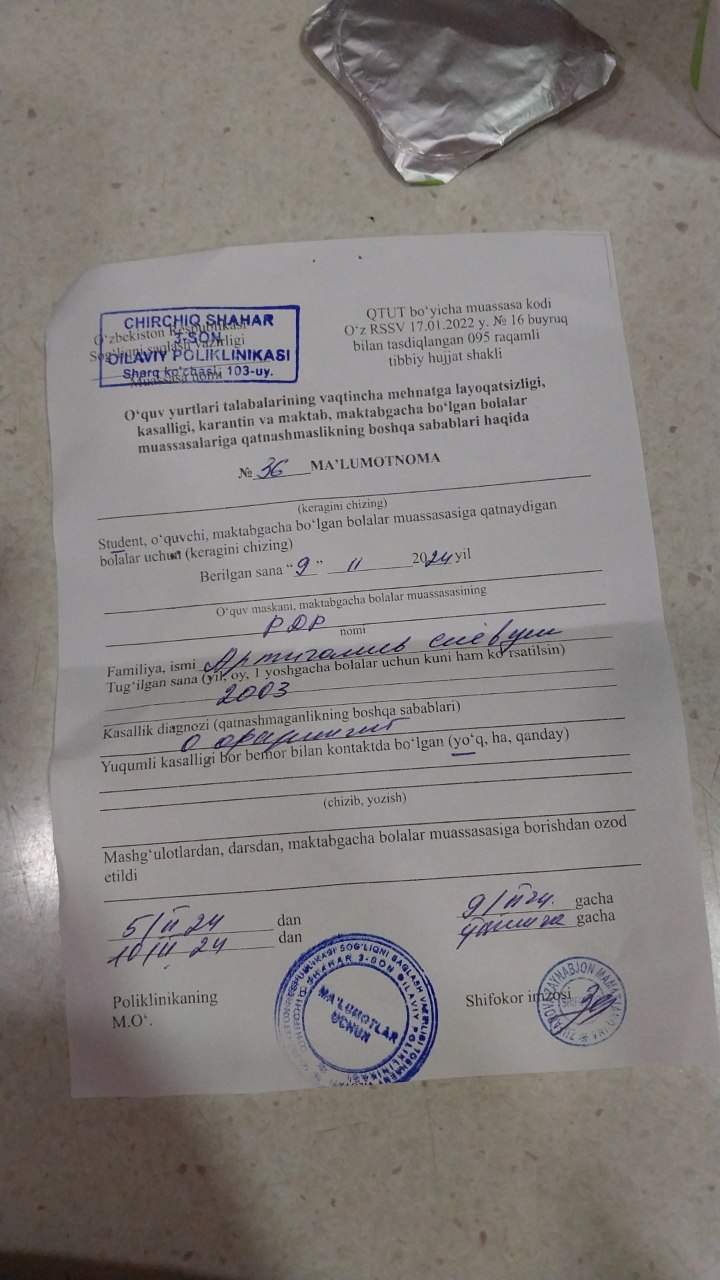 CHIRCHIQ SHAHAR
3-SON
OILAVIY POLIKLINIKASI
Sharq ko'chasi, 103-uy.
O‘zbekiston Respublikasi
Sog‘liqni saqlash vazirligi
Muassasa nomi
QTUT bo‘yicha muassasa kodi
O‘z RSSV 17.01.2022 y. № 16 buyruq
bilan tasdiqlangan 095 raqamli
tibbiy hujjat shakli
O‘quv yurtlari talabalarining vaqtincha mehnatga layoqatsizligi,
kasalligi, karantin va maktab, maktabgacha bo‘lgan bolalar
muassasalariga qatnashmaslikning boshqa sabablari haqida
№ 36 MA’LUMOTNOMA
(keragini chizing)
Student, o‘quvchi, maktabgacha bo‘lgan bolalar muassasasiga qatnaydigan
bolalar uchun (keragini chizing)
Berilgan sana “9” II 2024 yil
O‘quv maskani, maktabgacha bolalar muassasasining
PDP
nomi
Familiya, ismi
Tug‘ilgan sana (yil, oy, 1 yoshgacha bolalar uchun kuni ham ko‘rsatilsin)
2003
Kasallik diagnozi (qatnashmaganlikning boshqa sabablari)
Yuqumli kasalligi bor bemor bilan kontaktda bo‘lgan (yo‘q, ha, qanday)
(chizib, yozish)
Mashg‘ulotlardan, darsdan, maktabgacha bolalar muassasasiga borishdan ozod
etildi
5/II 24 dan 9/II 24. gacha
10/II 24 dan gacha
Poliklinikaning Shifokor imzosi
M.O‘.
MA'LUMOTLAR
UCHUN